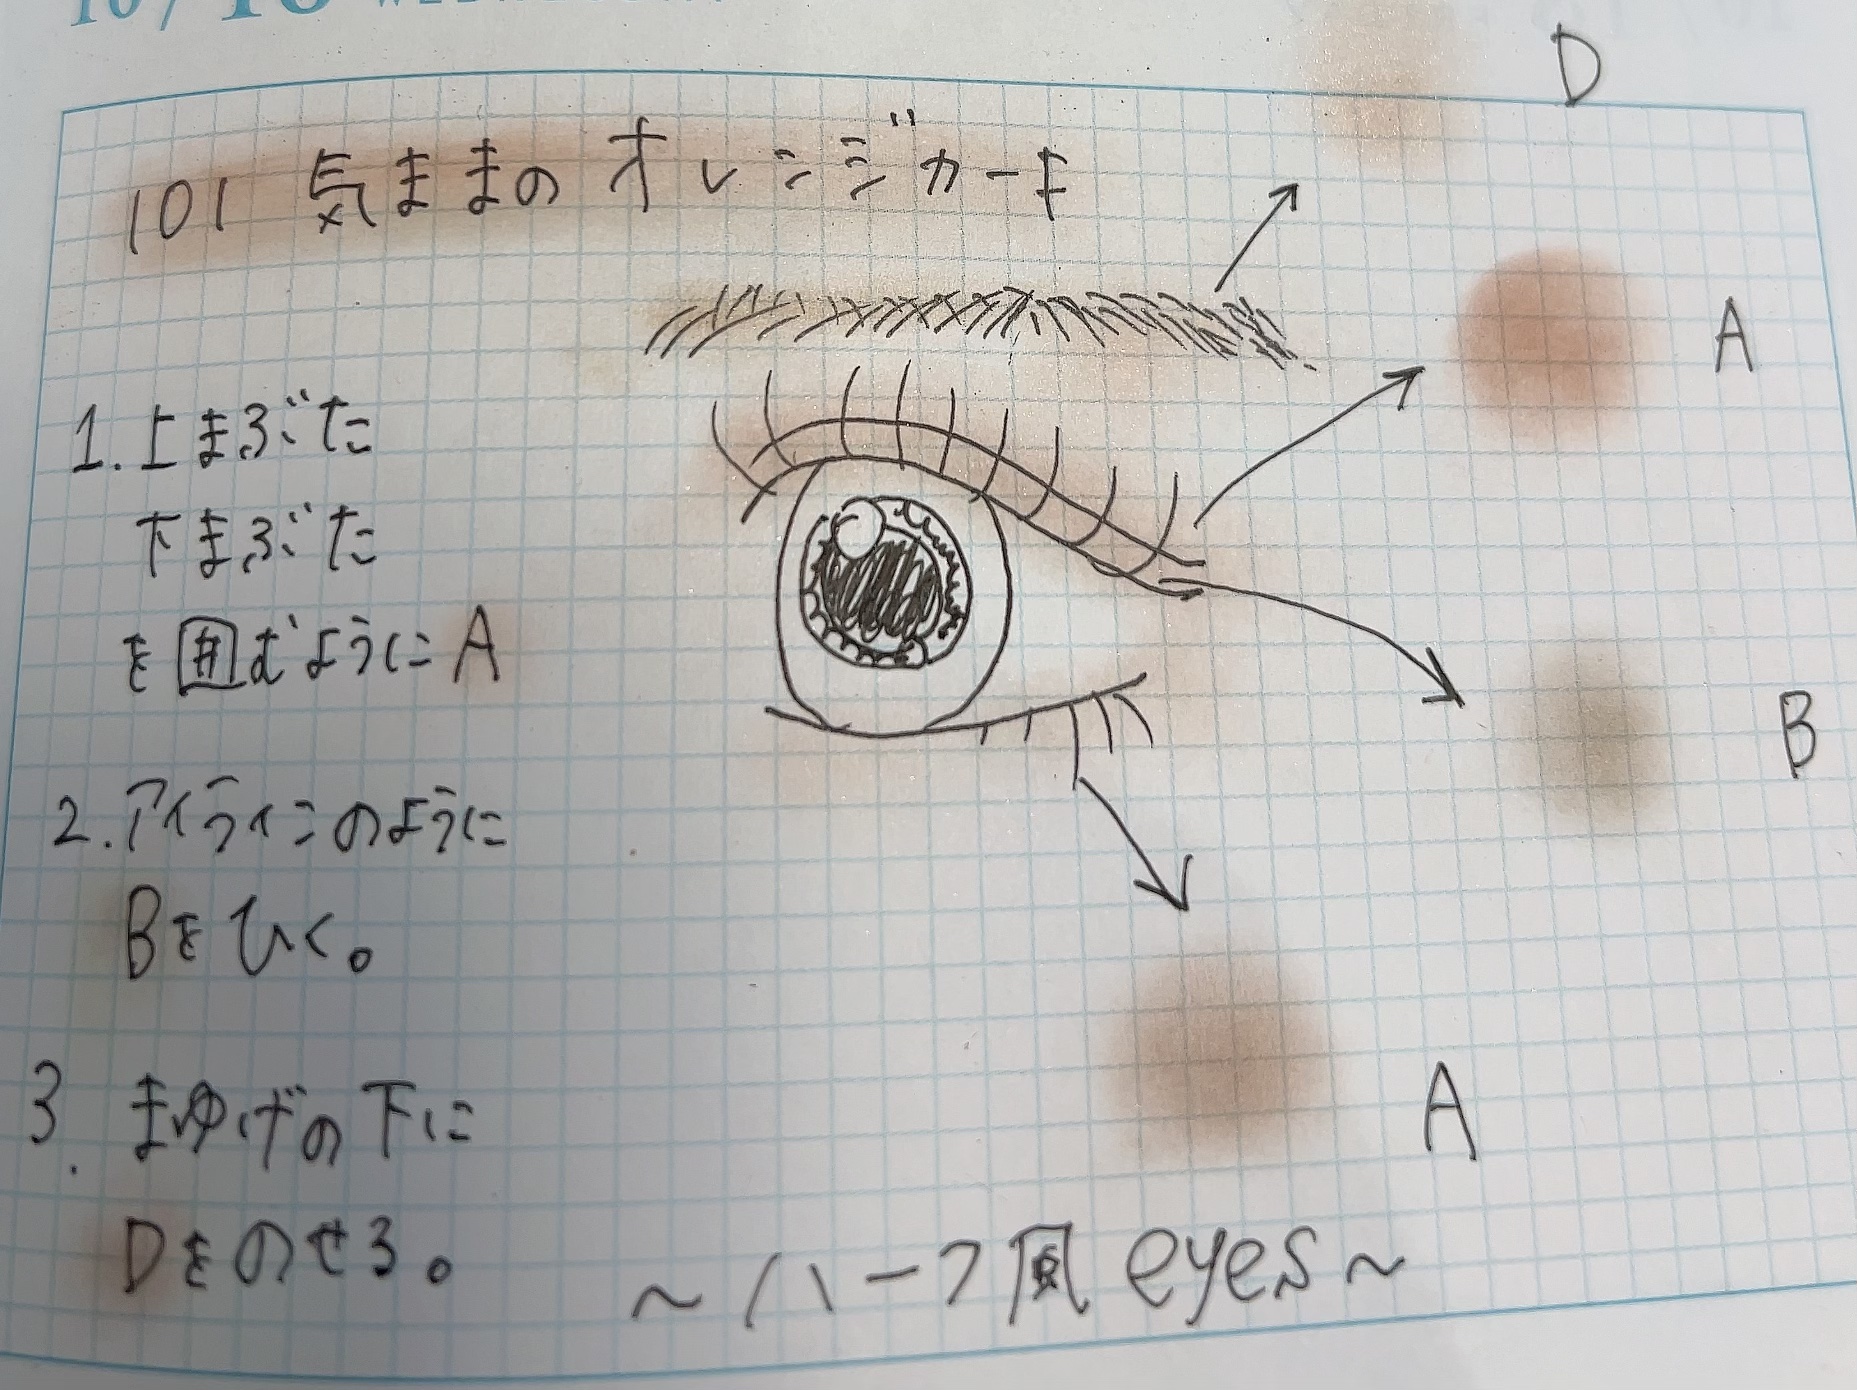 101 気ままのオレンジカーキ
D
A
1.上まぶた
下まぶた
を囲むようにA
B
2.アイラインのように
Bをひく。
A
3. まゆげの下に
Dをのせる。
～ハーフ風 eyes～